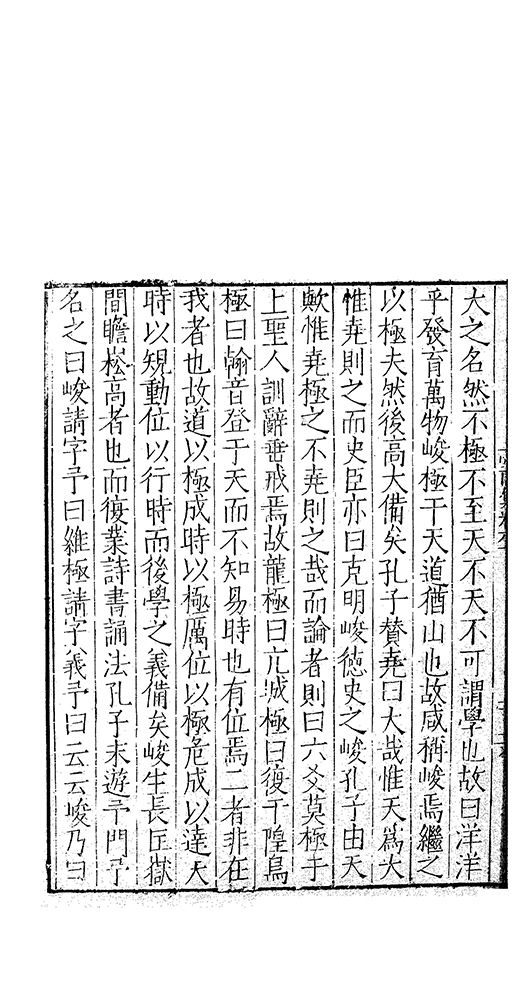 大之名然不極不至天不天不可謂學也故曰洋洋
乎發育萬物峻極于天道猶山也故咸稱峻焉繼之
以極夫然後高大備矣孔子贊堯曰大哉惟天爲大
惟堯則之而史臣亦曰克明峻德史之峻孔子由天
歟惟堯極之不堯則之哉而論者則曰六爻莫極于
上聖人訓辭垂戒焉故龍極曰亢城極曰復于隍鳥
極曰翰音登于天而不知易時也有位焉二者非在
我者也故道以極成時以極厲位以極危成以達天
時以規動位以行時而後學之義備矣峻生長匡嶽
間瞻崧高者也而復業詩書誦法孔子末遊予門予
名之曰峻請字予曰維極請字義予曰云云峻乃曰